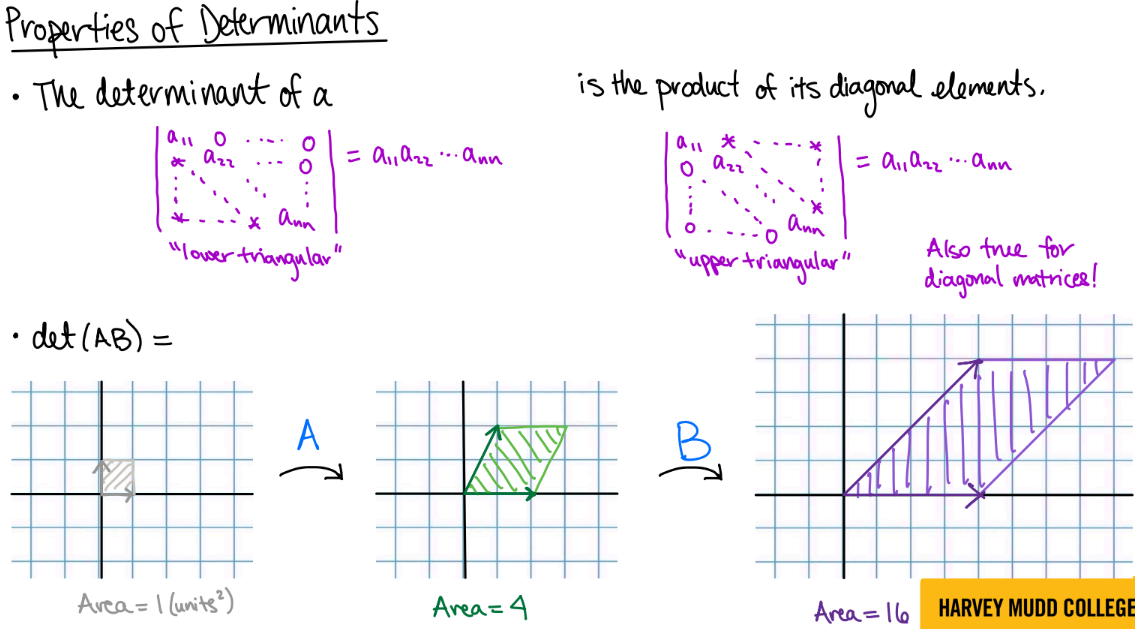 Properties of Determinants
• The determinant of a is the product of its diagonal elements.
a₁₁ 0 ..... 0
* a₂₂ ... 0 = a₁₁a₂₂ ... aₙₙ
* ..... * aₙₙ
"lower triangular"
a₁₁ * ..... *
0 a₂₂ = a₁₁a₂₂ ... aₙₙ
*
0 ..... 0 aₙₙ
"upper triangular"
Also true for
diagonal matrices!
• det(AB) =
A
B
Area = 1 (units²)
Area = 4
Area = 16
HARVEY MUDD COLLEGE